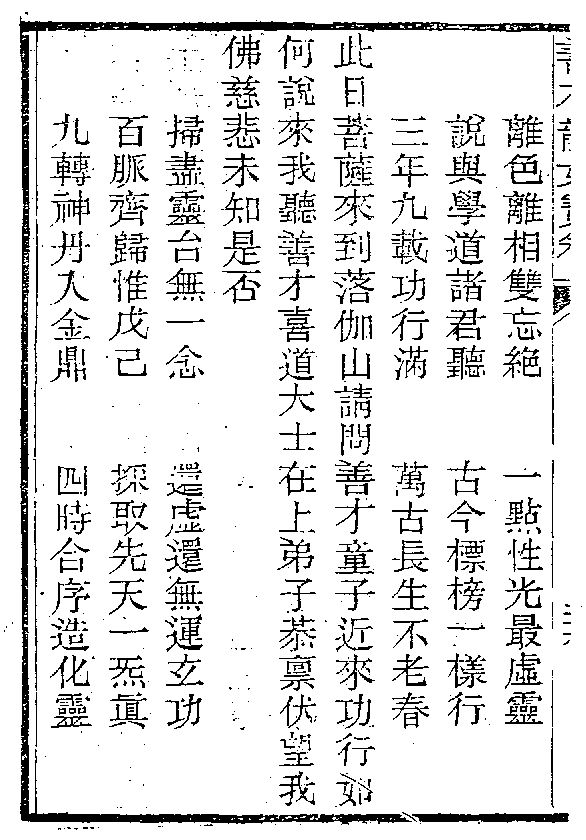 離色離相雙忘絕　一點性光最虛靈
說與學道諸君聽　古今標榜一樣行
三年九載功行滿　萬古長生不老春
此日菩薩來到落伽山請問善才童子近來功行如
何說來我聽善才喜道大士在上弟子恭禀伏望我
佛慈悲未知是否
掃盡靈台無一念　還虛還無運玄功
百脈齊歸惟戊己　採取先天一炁眞
九轉神丹入金鼎　四時合序造化靈